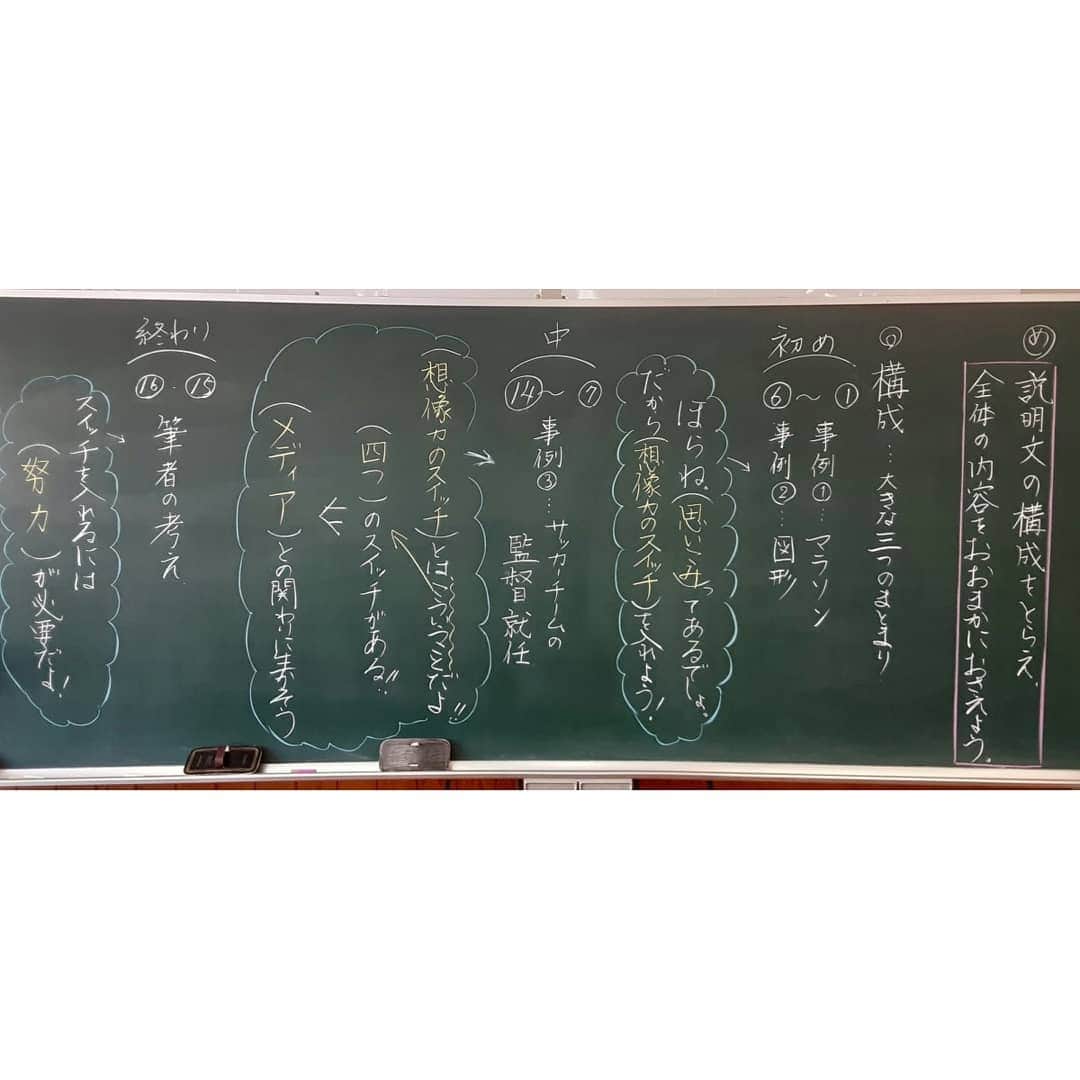 め
説明文の構成をとらえ、
全体の内容をおおまかにおさえよう。
構成…大きな三つのまとまり
初め
①〜⑥
事例①…マラソン
事例②…図形
ほらね、(思いこみ)ってあるでしょ。
だから(想像力のスイッチ)を入れよう!
中
⑦〜⑭
事例③…サッカーチームの
監督就任
(想像力のスイッチ)とは、こういうことだよ!!
(四つ)のスイッチがある!!
(メディア)との関わりに生かそう
終わり
⑮・⑯
筆者の考え
スイッチを入れるには
(努力)が必要だよ!